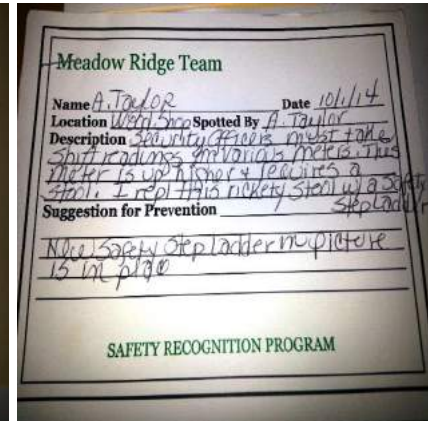 Meadow Ridge Team
Name A. Taylor Date 10/1/14
Location Wood Shop Spotted By A. Taylor
Description Security Officers must take
shift readings on various meters. This
meter is up higher & requires a
stool. I repl this rickety stool w/a Safety
Suggestion for Prevention Step Ladder
New Safety Step Ladder in picture
is in place
SAFETY RECOGNITION PROGRAM